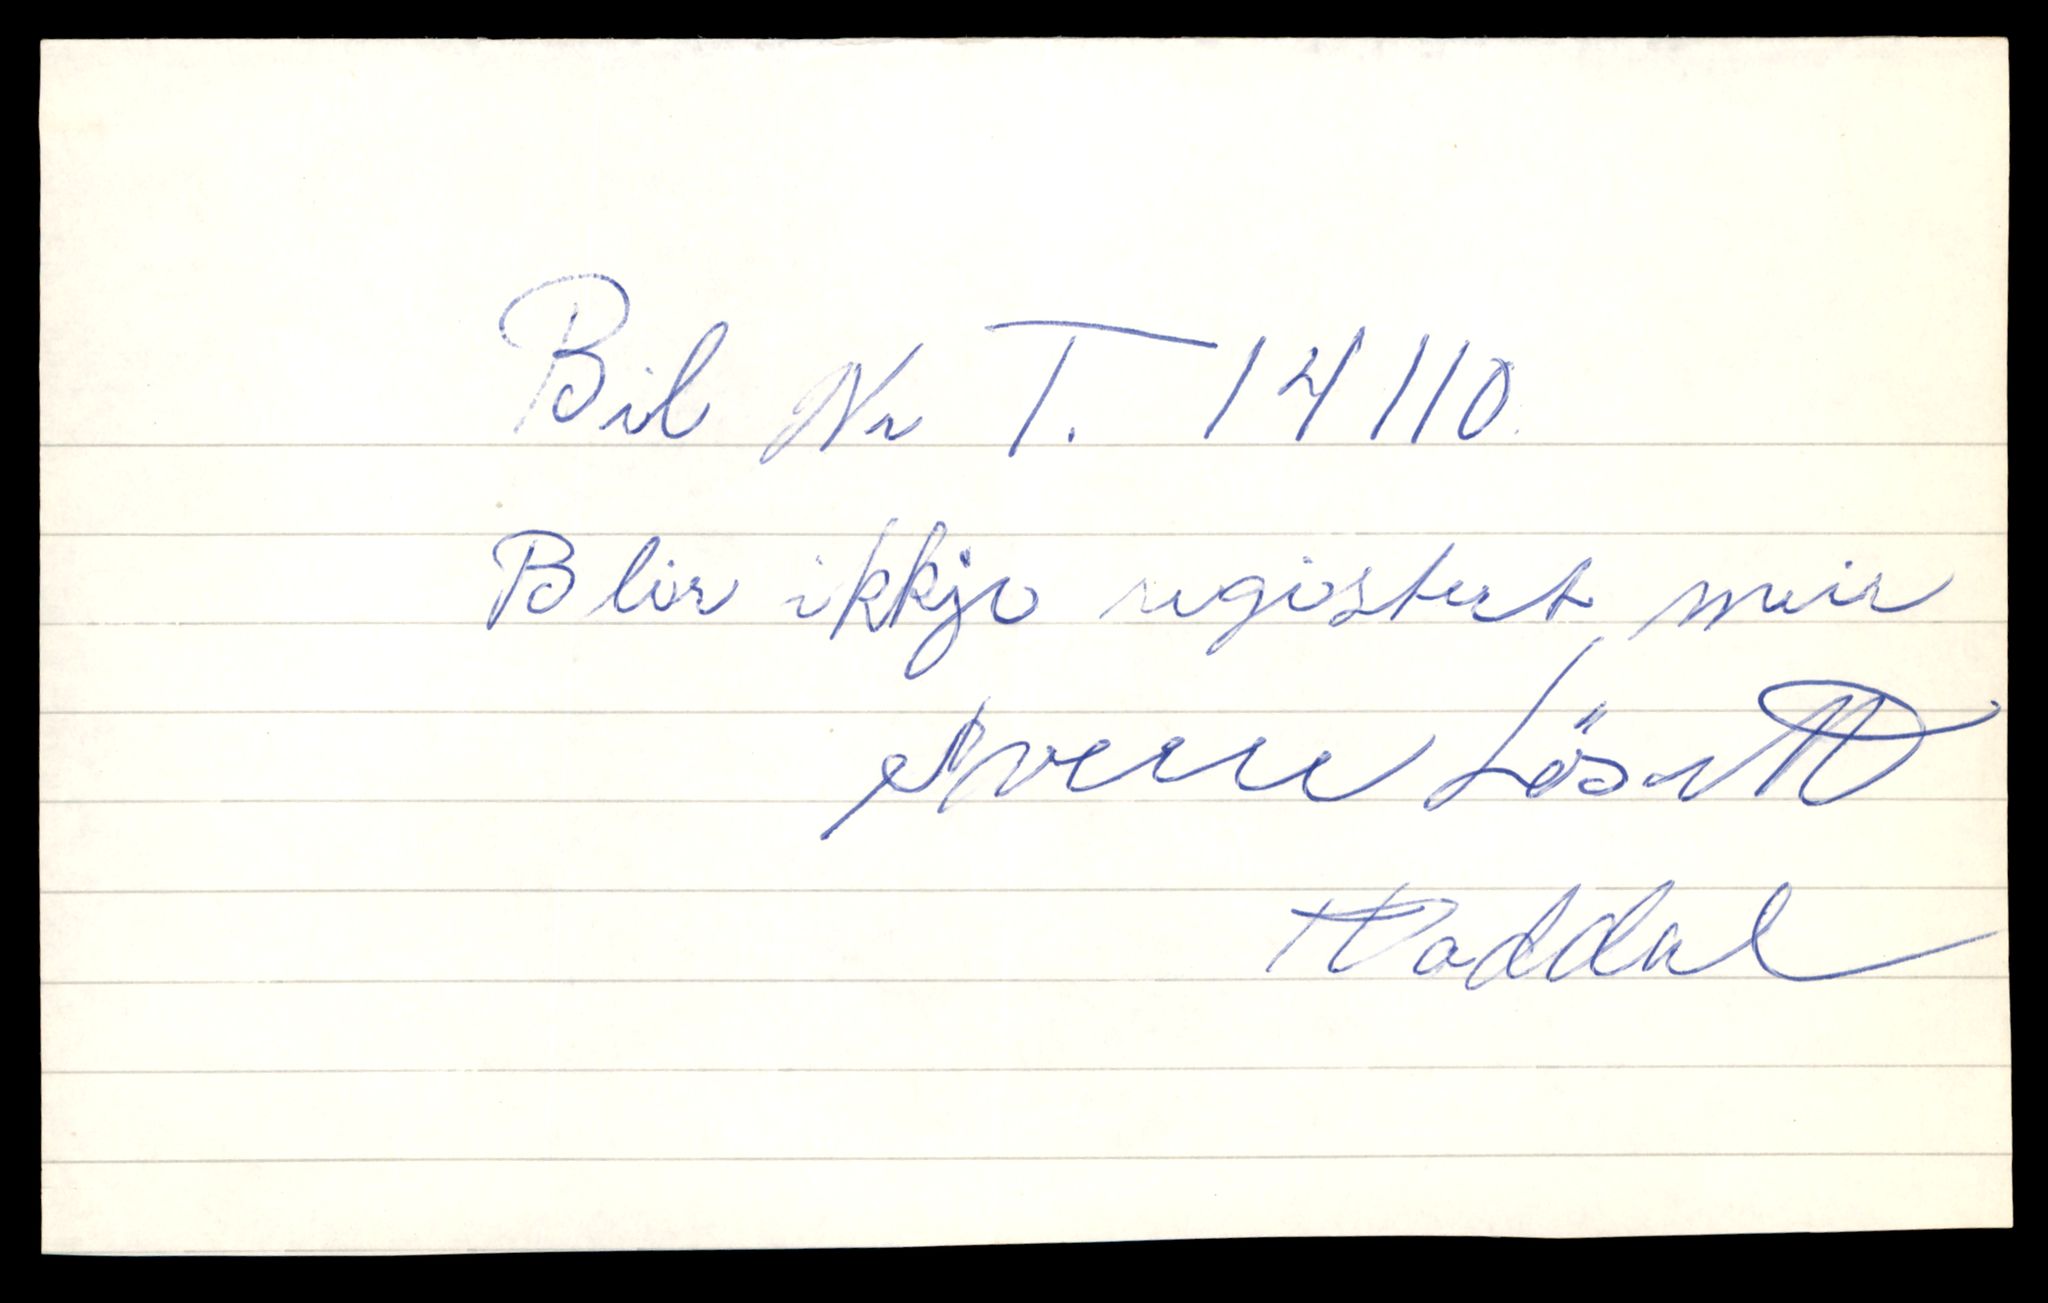 Bil Nr T. 14110.
Blir ikkje registert meir
Sverre Lösett
Haddal